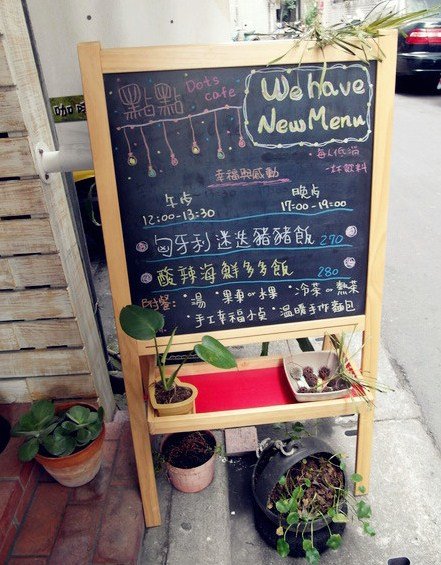 點點
Dots
cafe
We have
New Menu
每人低消
一杯飲料
幸福與感動
午占 晚占
12:00-13:30 17:00-19:00
匈牙利迷迭豬豬飯 270
酸辣海鮮多多飯 280
附餐: 湯 · 果凍or水果 · 冷菜or熱菜
· 手工幸福小點 · 溫暖手作麵包
咖